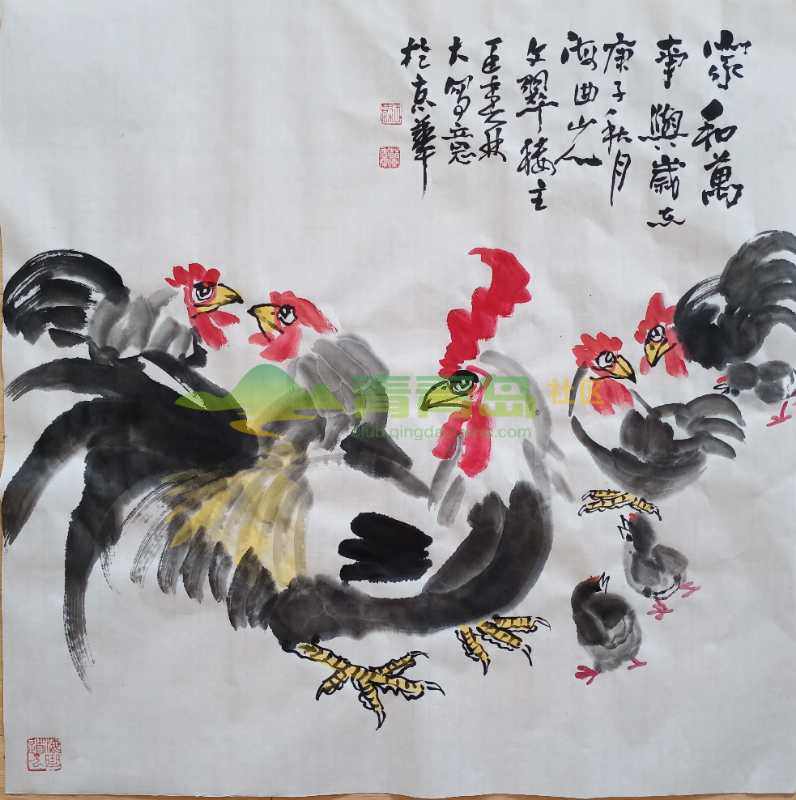 家和萬
事興歲在
庚子秋月
海曲山人
文翠樓主
大寫意
於京華
青青岛社区
club.qingdaonews.com